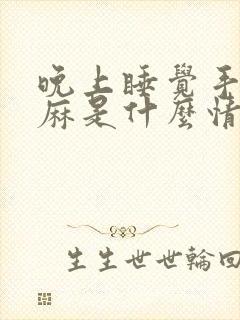 晚上睡覺手
麻是什麼情
生生世世輪回